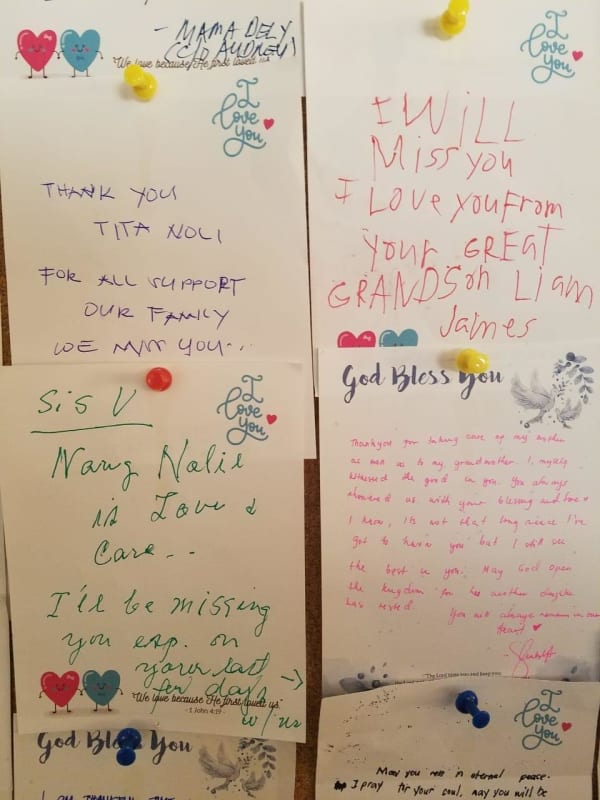 - MAMA DELY
(C/O AUDREY)
"We love because He first loved us"
I
love
you
THANK YOU
TITA NOLI
FOR ALL SUPPORT
OUR FAMILY
WE MISS YOU...
I
love
you
I WiLL
Miss you
I LOVE you From
your GREAT
GRANDSon Liam
James
I
love
you
Sis V
Nang Nolie
is Love &
Care...
I'll be missing
you esp. on
your last
few days
w/ us
"We love because He first loved us."
1 John 4:19
God Bless You
Thankyou for taking care of my mother
as well as to my grandmother. I, myself
witnessed the good in you. You always
showered us with your blessing and love.
I know, its not that long since I've
got to know you but I still see
the best in you. May God open
the kingdom for his another daughter
has rested. You will always remain in our
heart
"The Lord bless you and keep you;
God Bless You
I AM THANKFUL THE
I
love
you
May you rest in eternal peace.
I pray for your soul, may you will be